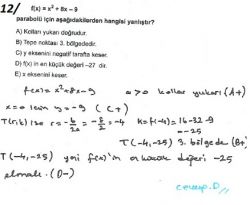 12/ f(x) = x² + 8x − 9
parabolü için aşağıdakilerden hangisi yanlıştır?
A) Kolları yukarı doğrudur.
B) Tepe noktası 3. bölgededir.
C) y eksenini negatif tarafta keser.
D) f(x) in en küçük değeri −27 dir.
E) x eksenini keser.
f(x) = x² + 8x − 9 a > 0 kollar yukarı (A+)
x = 0 için y = −9 (C+)
T(r,k) ise r = −b/2a = −8/2 = −4 k = f(−4) = 16 − 32 − 9
= −25
T(−4, −25) 3. bölgede (B+)
T(−4, −25) yani f(x)'in en küçük değeri −25
olmalı. (D−)
cevap D